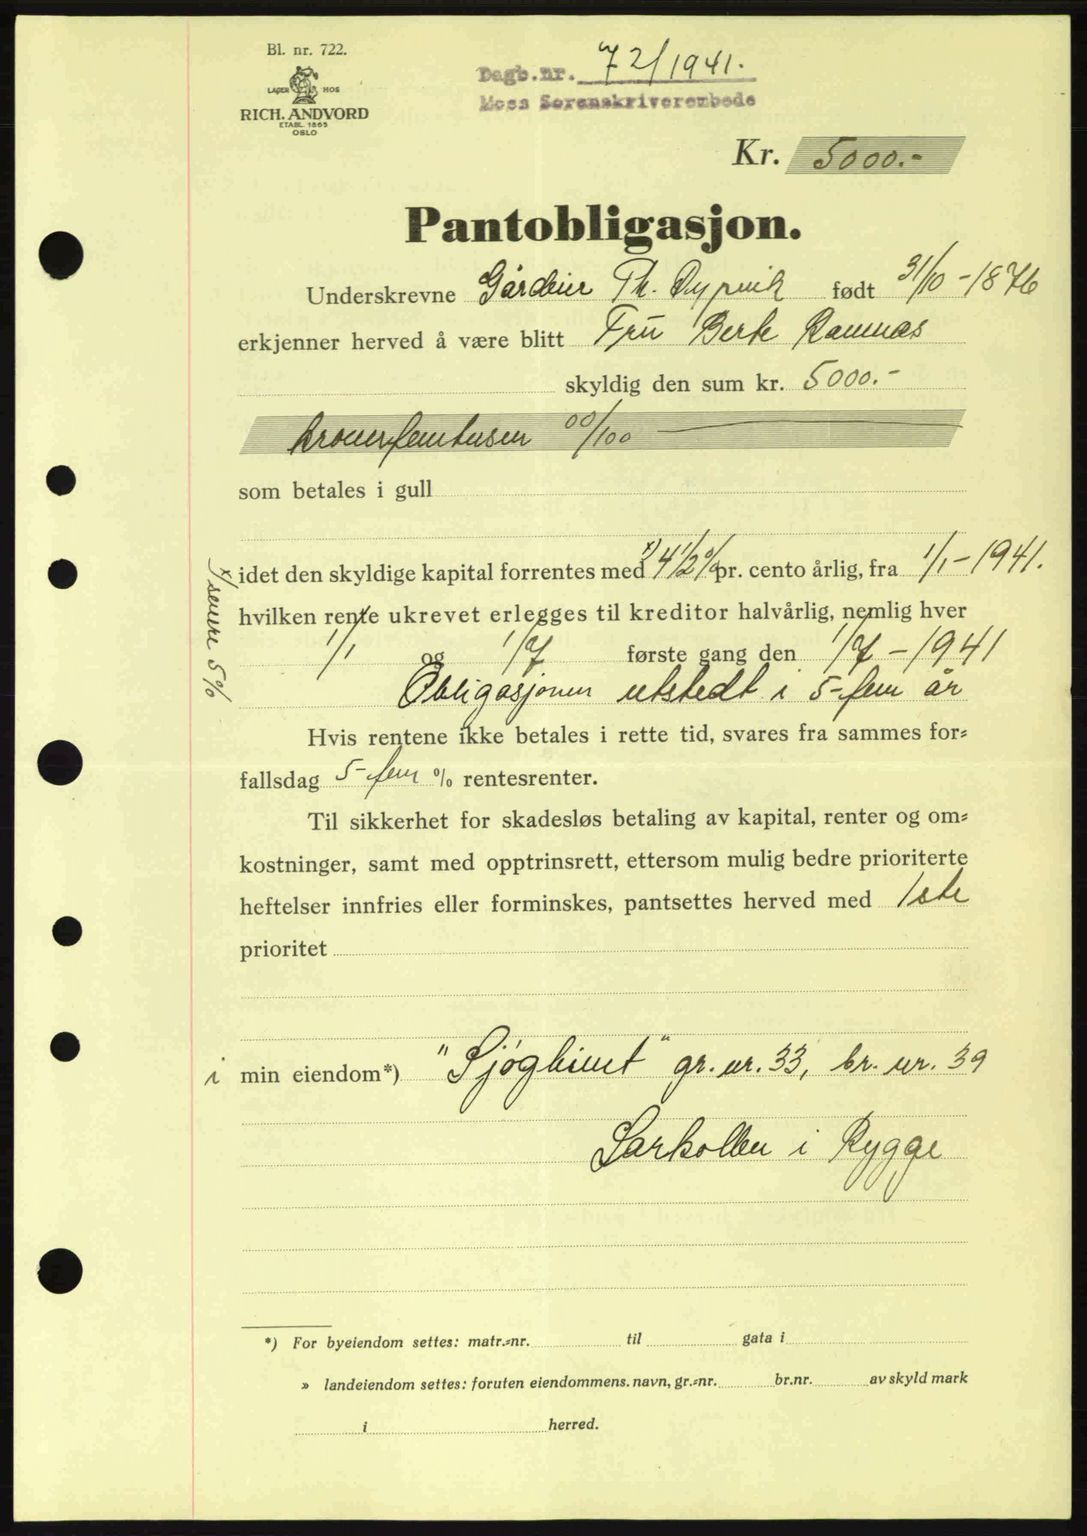 Bl. nr. 722.
LAGER HOS
RICH. ANDVORD
ETABL. 1865
OSLO
Dagb.nr. 72/1941.
Moss Sorenskriverembede
Kr. 5000.-
Pantobligasjon.
Underskrevne Gårdeier Th. Dypvik født 31/10-1876
erkjenner herved å være blitt Fru Berte Ramnæs
skyldig den sum kr. 5000.-
kronerfemtusen 00/100
som betales i gull
idet den skyldige kapital forrentes med x) 4 1/2 % pr. cento årlig, fra 1/1-1941.
x/senere 5%
hvilken rente ukrevet erlegges til kreditor halvårlig, nemlig hver
1/1 og 1/7 første gang den 1/7-1941
Obligasjonen utstedt i 5-fem år
Hvis rentene ikke betales i rette tid, svares fra sammes for=
fallsdag 5-fem % rentesrenter.
Til sikkerhet for skadesløs betaling av kapital, renter og om=
kostninger, samt med opptrinsrett, ettersom mulig bedre prioriterte
heftelser innfries eller forminskes, pantsettes herved med 1ste
prioritet
i min eiendom*) "Sjøglimt" gr. nr. 33, br. nr. 39
Larkollen i Rygge
*) For byeiendom settes: matr.=nr. til gata i
» landeiendom settes: foruten eiendommens. navn, gr.=nr. br.nr. av skyld mark
i herred.